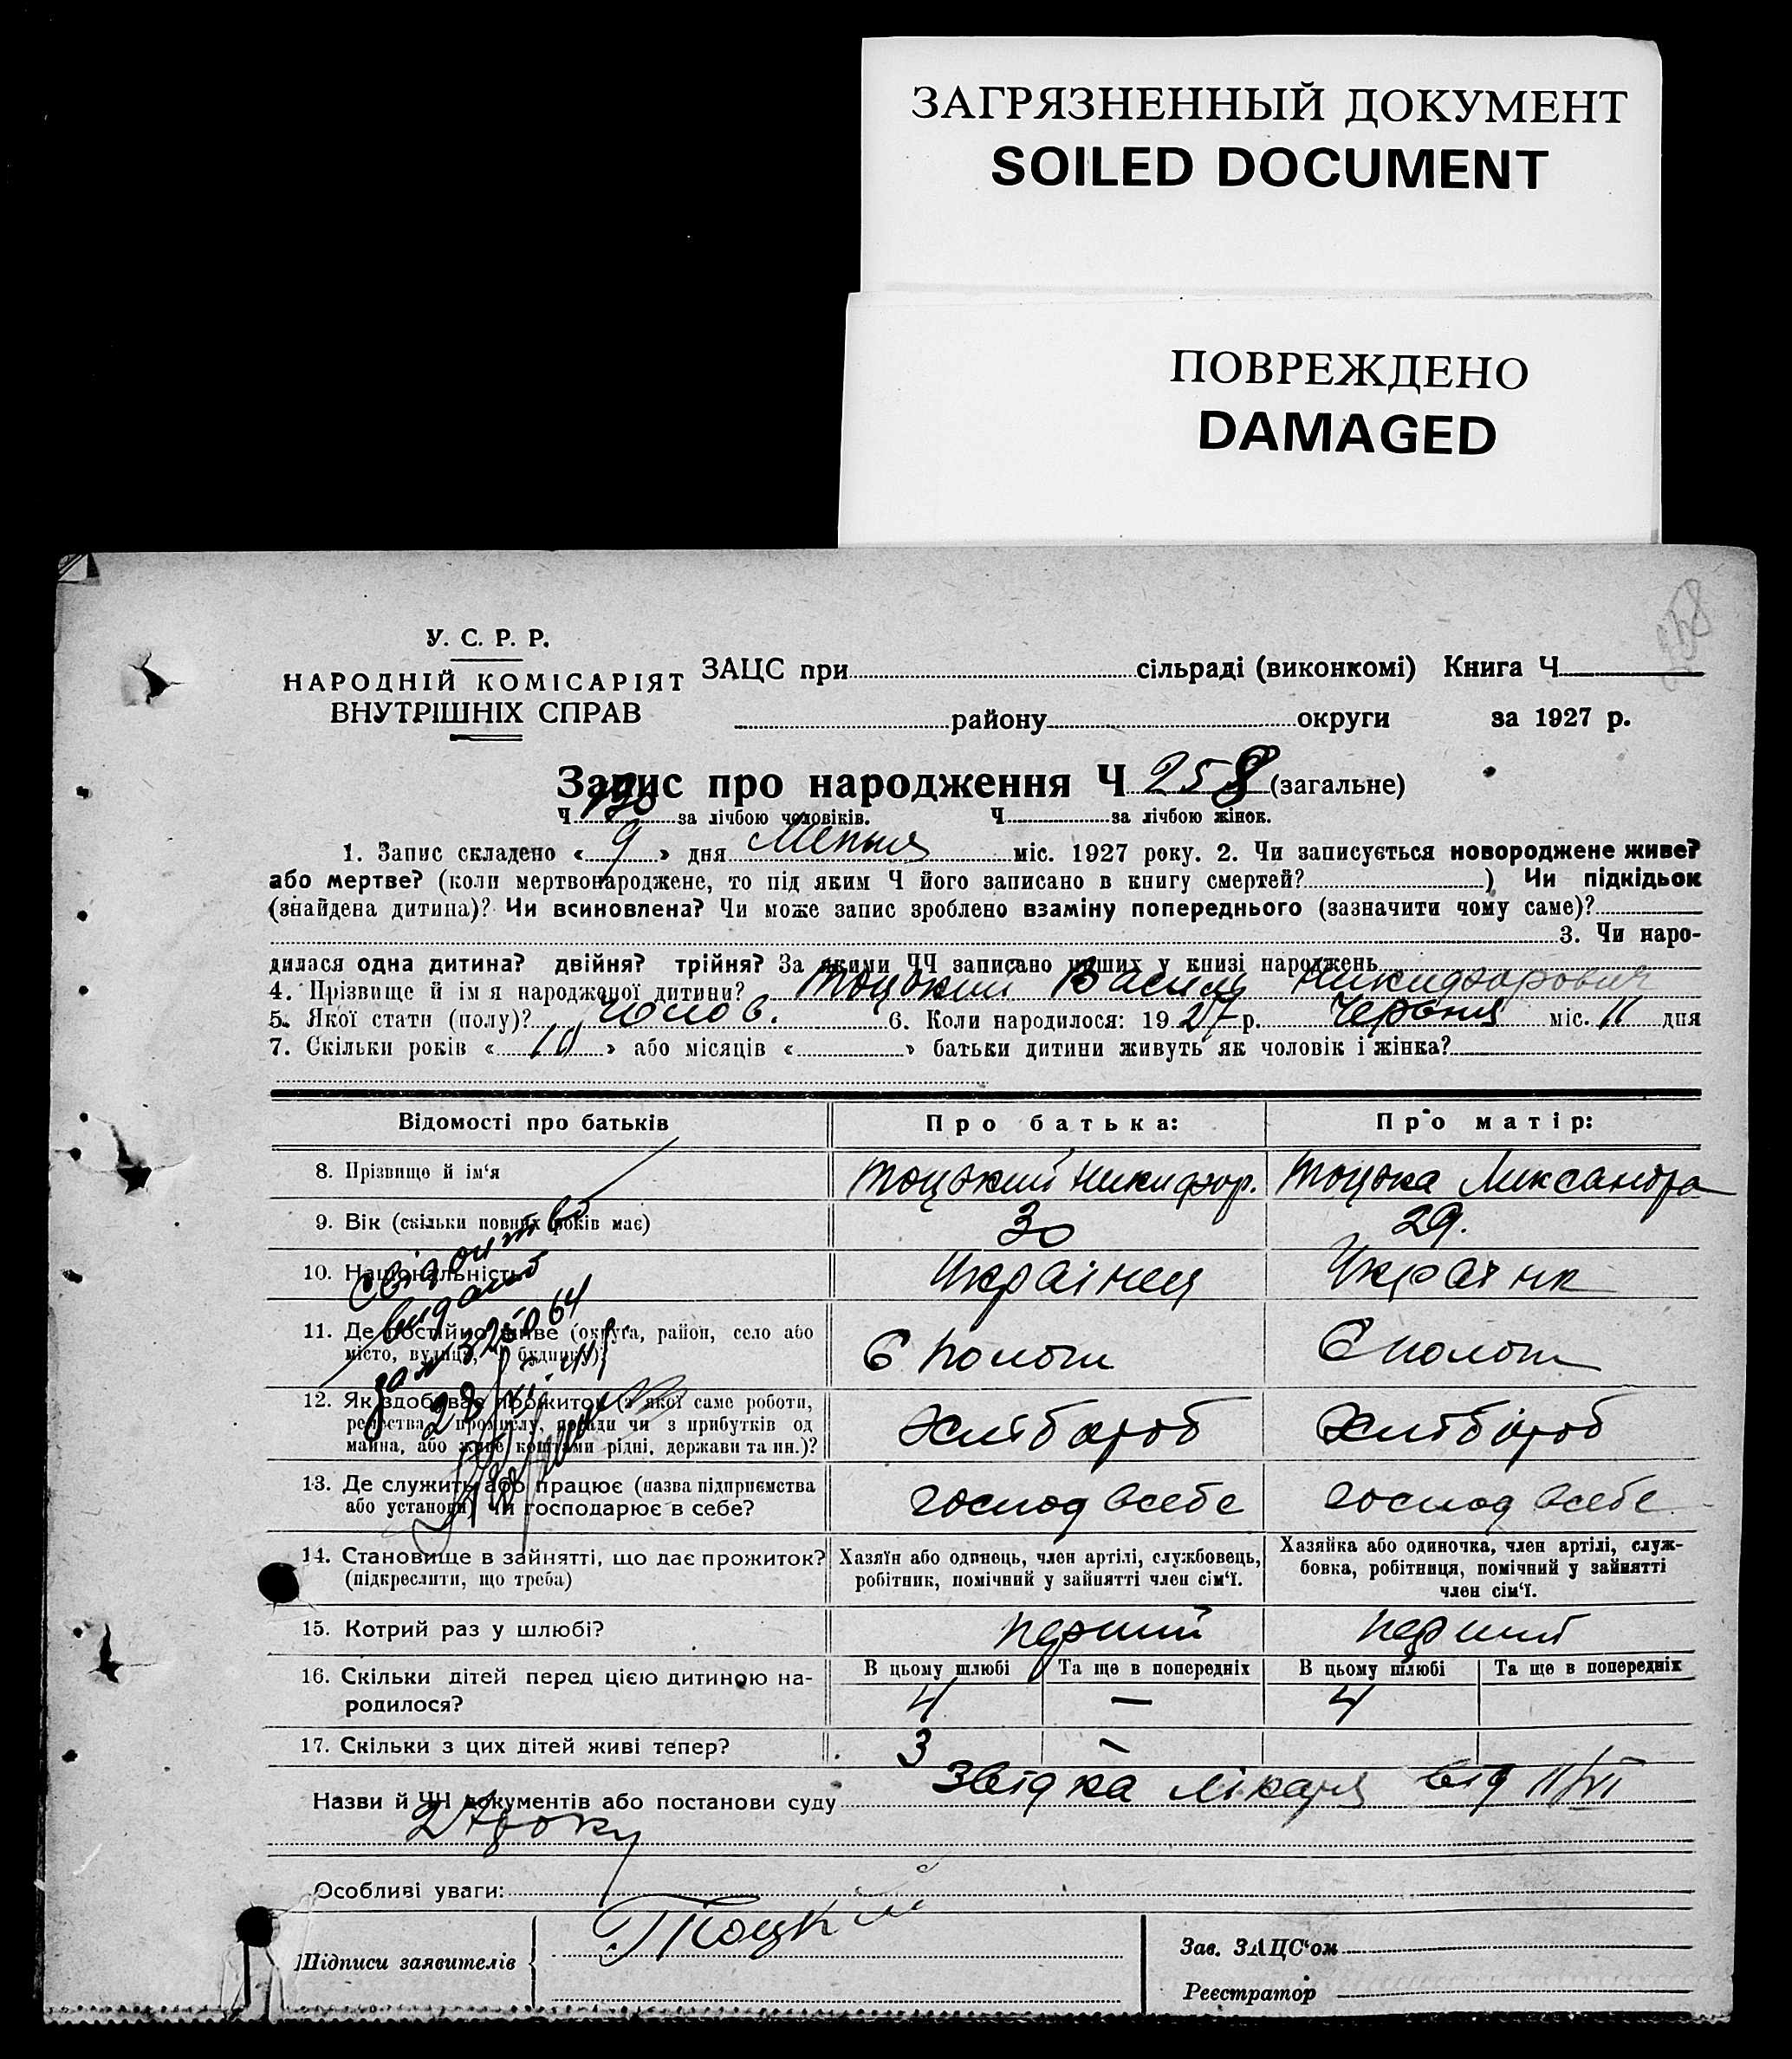 ЗАГРЯЗНЕННЫЙ ДОКУМЕНТ
SOILED DOCUMENT
ПОВРЕЖДЕНО
DAMAGED
258
У. С. Р. Р.
НАРОДНІЙ КОМІСАРІЯТ
ВНУТРІШНІХ СПРАВ
ЗАЦС при сільраді (виконкомі) Книга Ч
району округи за 1927 р.
Запис про народження Ч 258 (загальне)
Ч 130 за лічбою чоловіків. Ч за лічбою жінок.
1. Запис складено « 9 » дня Липня міс. 1927 року. 2. Чи записується новороджене живе?
або мертве? (коли мертвонароджене, то під яким Ч його записано в книгу смертей? ) Чи підкідьок
(знайдена дитина)? Чи всиновлена? Чи може запис зроблено взаміну попереднього (зазначити чому саме)?
3. Чи наро-
дилася одна дитина? двійня? трійня? За якими ЧЧ записано інших у книзі народжень
4. Прізвище й ім я народженої дитини? Тоцький Василь Никифорович
5. Якої стати (полу)? чолов. 6. Коли народилося: 19 27 р. Червня міс. 11 дня
7. Скільки років « 10 » або місяців « » батьки дитини живуть як чоловік і жінка?
Відомості про батьків Про батька: Про матір:
8. Прізвище й ім‘я Тоцький Никифор. Тоцька Ликсандра
9. Вік (скільки повних років має) 30 29.
10. Національність Українец Українк
11. Де постійно живе (округа, район, село або
місто, вулиця, Ч будинку)? Є Полот Є Полот
12. Як здобуває прожиток (з якої саме роботи,
ремества, промислу, посади чи з прибутків од
майна, або живе коштами рідні, держави та ин.)? Хлібороб Хлібороб
13. Де служить або працює (назва підприємства
або установи) чи господарює в себе? господ всебе господ всебе
свідоцтво
видано
28
14. Становище в зайнятті, що дає прожиток?
(підкреслити, що треба)
Хазяїн або одинець, член артілі, службовець,
робітник, помічний у зайнятті член сім‘ї.
Хазяйка або одиночка, член артілі, служ-
бовка, робітниця, помічний у зайнятті
член сім‘ї.
15. Котрий раз у шлюбі? перший перший
16. Скільки дітей перед цією дитиною на-
родилося?
В цьому шлюбі Та ще в попередніх В цьому шлюбі Та ще в попередніх
4 — 4
17. Скільки з цих дітей живі тепер? 3 —
Назви й ЧЧ документів або постанови суду Звідка лікаря від 11/VI
27 року
Особливі уваги:
Підписи заявителів Тоцкий
Зав. ЗАЦС‘ом
Реєстратор